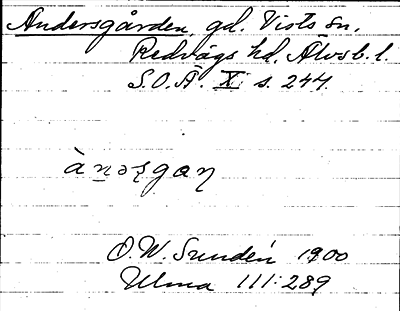 Andersgården, gd. Vists sn,
Redvägs hd. Älvsb. l.
S.O.Ä. XI s. 244.
O. W. Sundén 1900
Ulma 111:289